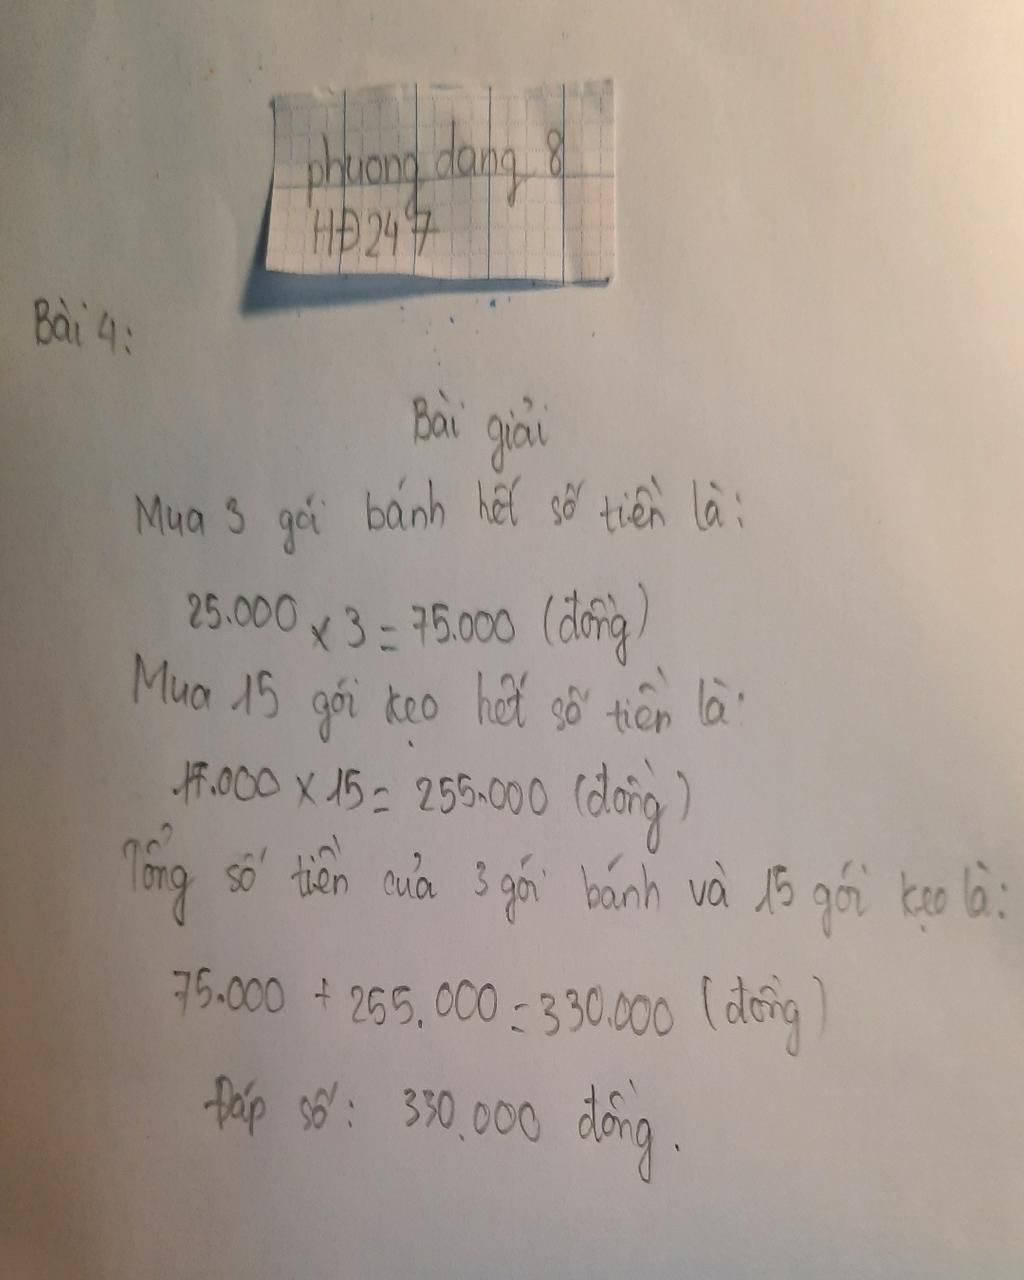 phuong dang 8
HĐ247
Bài 4:
Bài giải
Mua 3 gói bánh hết số tiền là:
25.000 x 3 = 75.000 (đồng)
Mua 15 gói kẹo hết số tiền là:
17.000 x 15 = 255.000 (đồng)
Tổng số tiền của 3 gói bánh và 15 gói kẹo là:
75.000 + 255.000 = 330.000 (đồng)
Đáp số: 330.000 đồng.